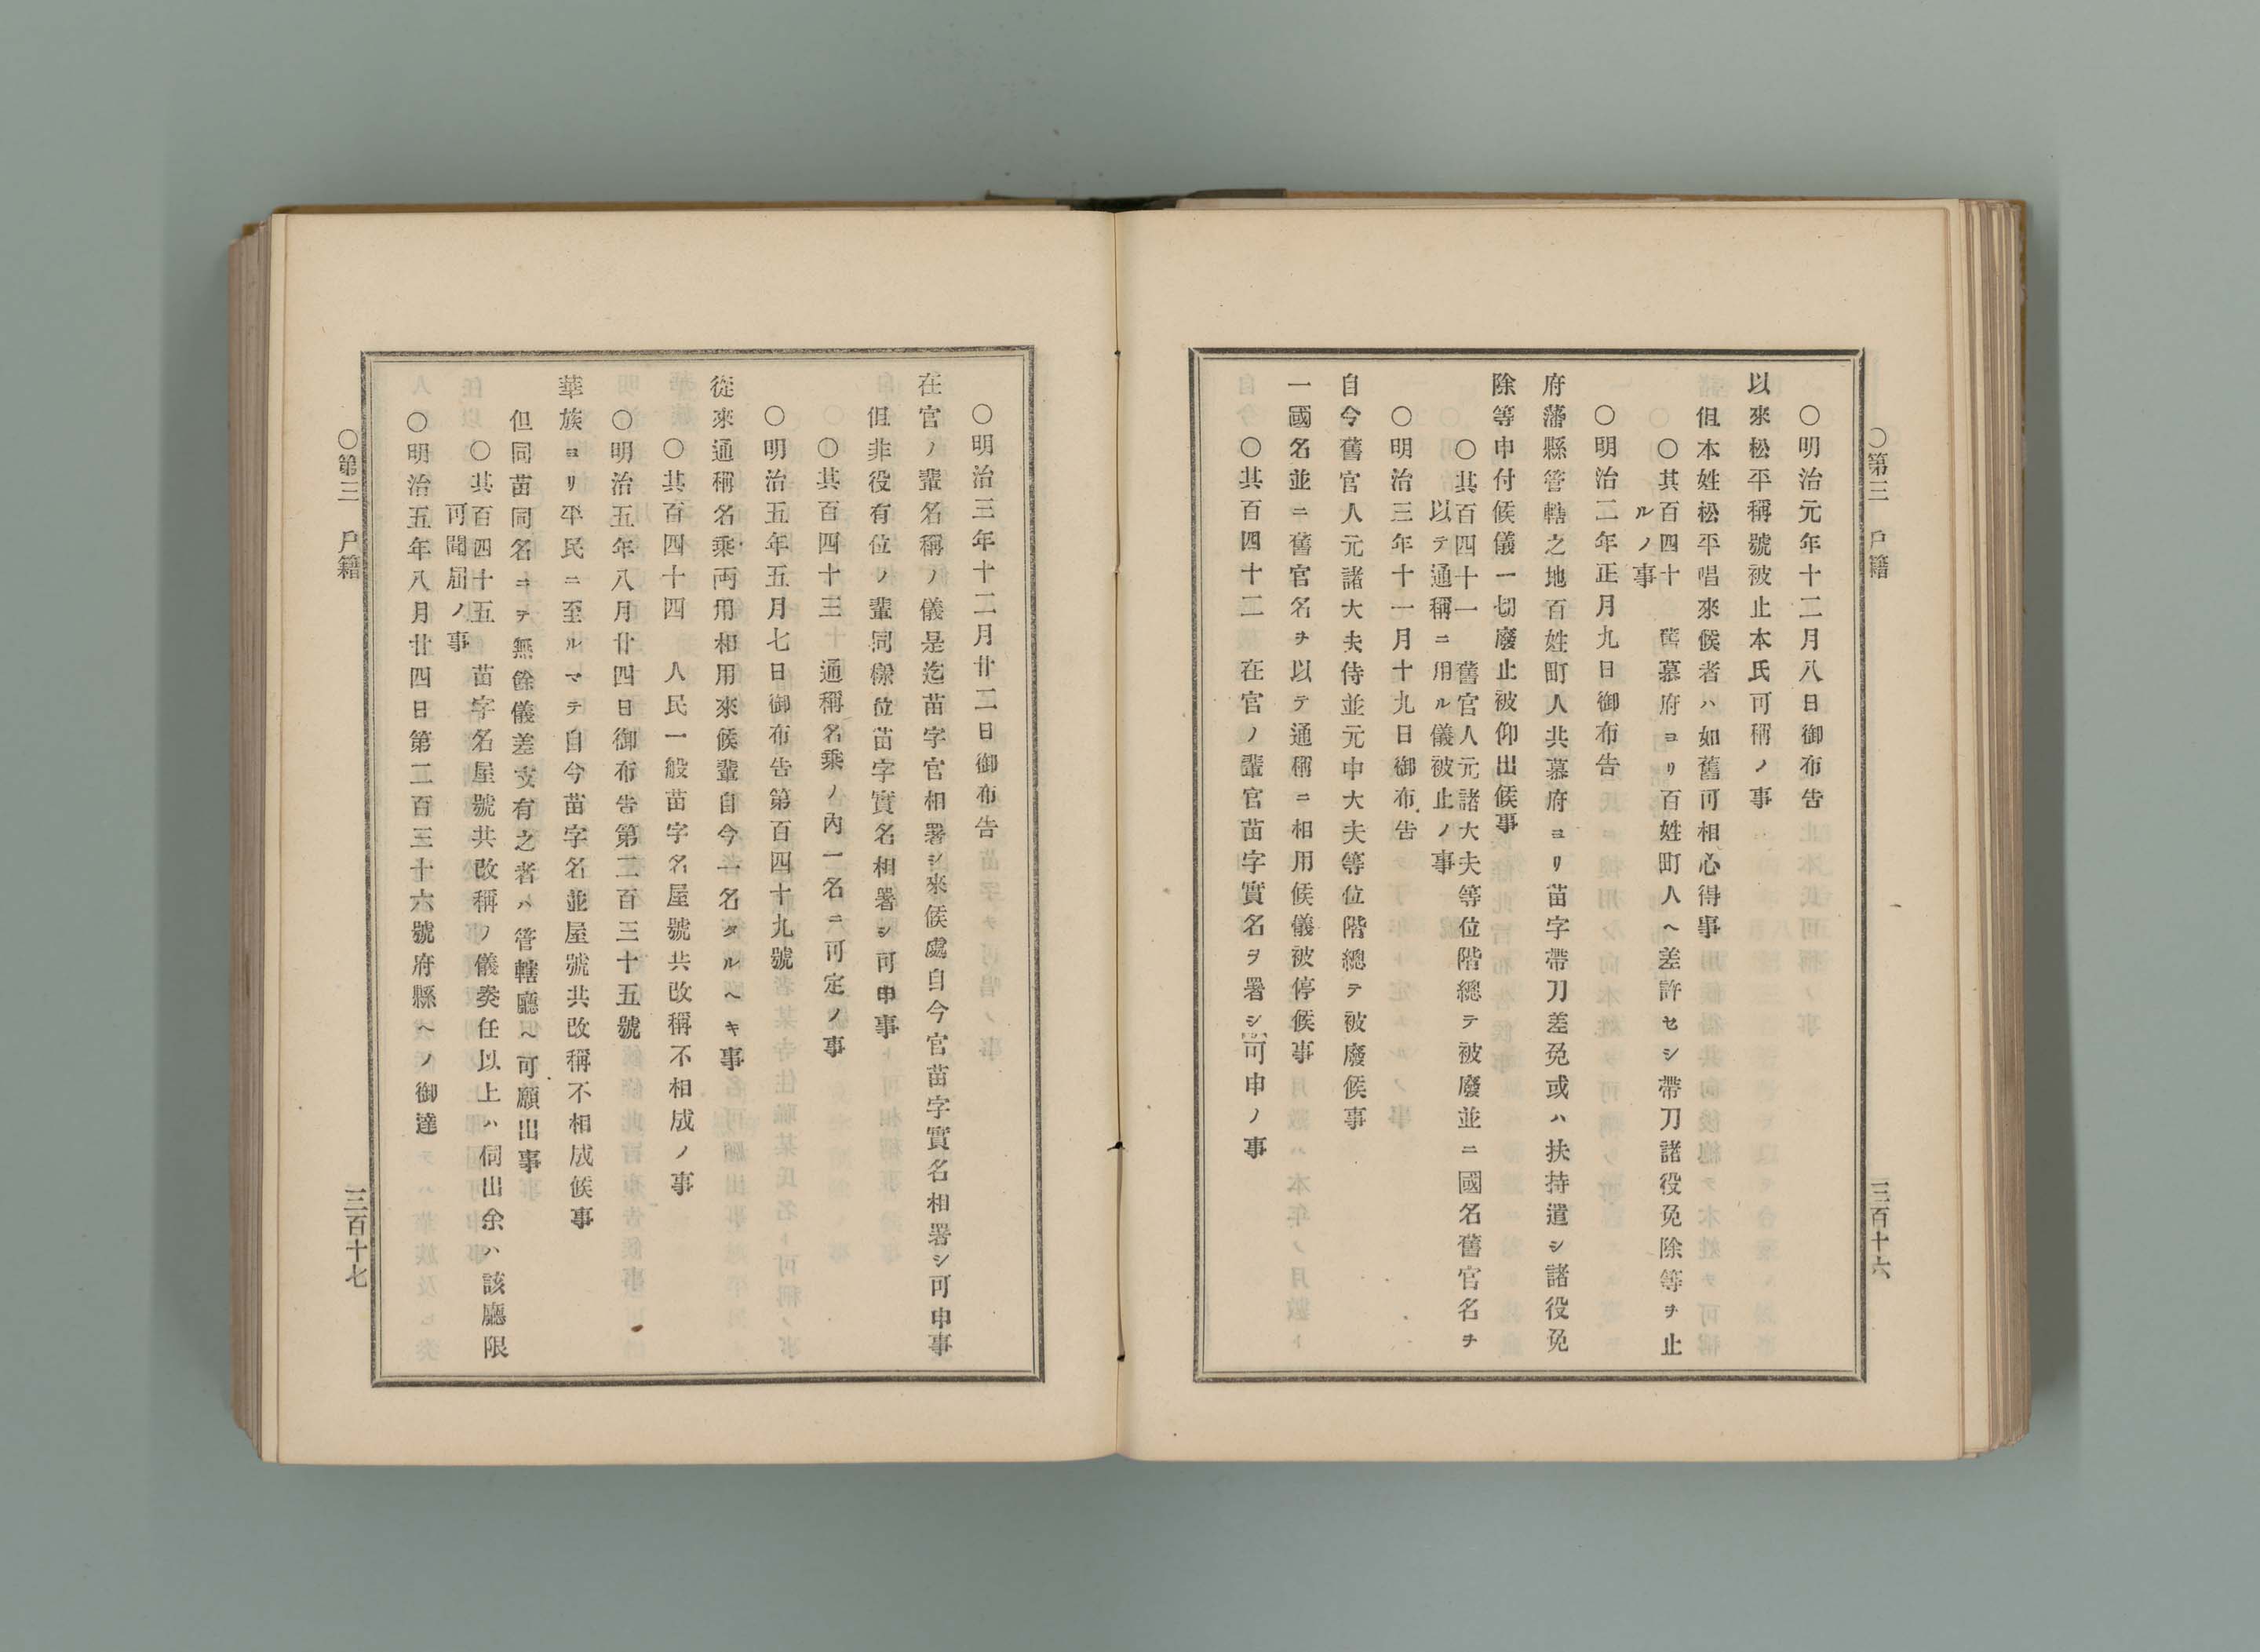 ○第三　戸籍
三百十六
○明治元年十二月八日御布告
以來松平稱號被止本氏可稱ノ事
但本姓松平唱來候者ハ如舊可相心得事
○其百四十　舊幕府ヨリ百姓町人ヘ差許セシ帶刀諸役免除等ヲ止
ルノ事
○明治二年正月九日御布告
府藩縣管轄之地百姓町人共慕府ヨリ苗字帶刀差免或ハ扶持遣シ諸役免
除等申付候儀一切廢止被仰出候事
○其百四十一　舊官人元諸大夫等位階總テ被廢並ニ國名舊官名ヲ
以テ通稱ニ用ル儀被止ノ事
○明治三年十一月十九日御布告
自今舊官人元諸大夫侍並元中大夫等位階總テ被廢候事
一國名並ニ舊官名ヲ以テ通稱ニ相用候儀被停候事
○其百四十二　在官ノ輩官苗字實名ヲ署シ可申ノ事
○明治三年十二月廿二日御布告
在官ノ輩名稱ノ儀是迄苗字官相署シ來候處自今官苗字實名相署シ可申事
但非役有位ノ輩同樣位苗字實名相署シ可申事
○其百四十三　通稱名乘ノ內一名ニ可定ノ事
○明治五年五月七日御布告第百四十九號
從來通稱名乘兩用相用來候輩自今一名タルヘキ事
○其百四十四　人民一般苗字名屋號共改稱不相成ノ事
○明治五年八月廿四日御布告第二百三十五號
華族ヨリ平民ニ至ルマテ自今苗字名並屋號共改稱不相成候事
但同苗同名ニテ無餘儀差支有之者ハ管轄廳ヘ可願出事
○其百四十五　苗字名屋號共改稱ノ儀奏任以上ハ伺出余ハ該廳限
可聞屆ノ事
○明治五年八月廿四日第二百三十六號府縣ヘノ御達
○第三　戸籍
三百十七